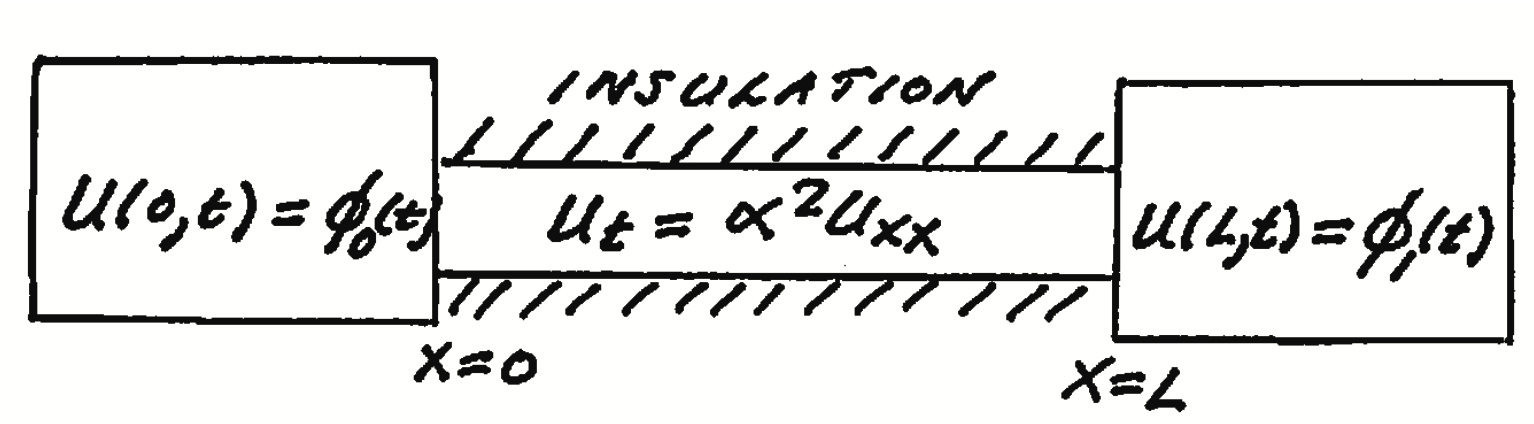 INSULATION
U(0,t) = ϕ₀(t) Uₜ = α²Uₓₓ U(L,t) = ϕ₁(t)
X=0
X=L